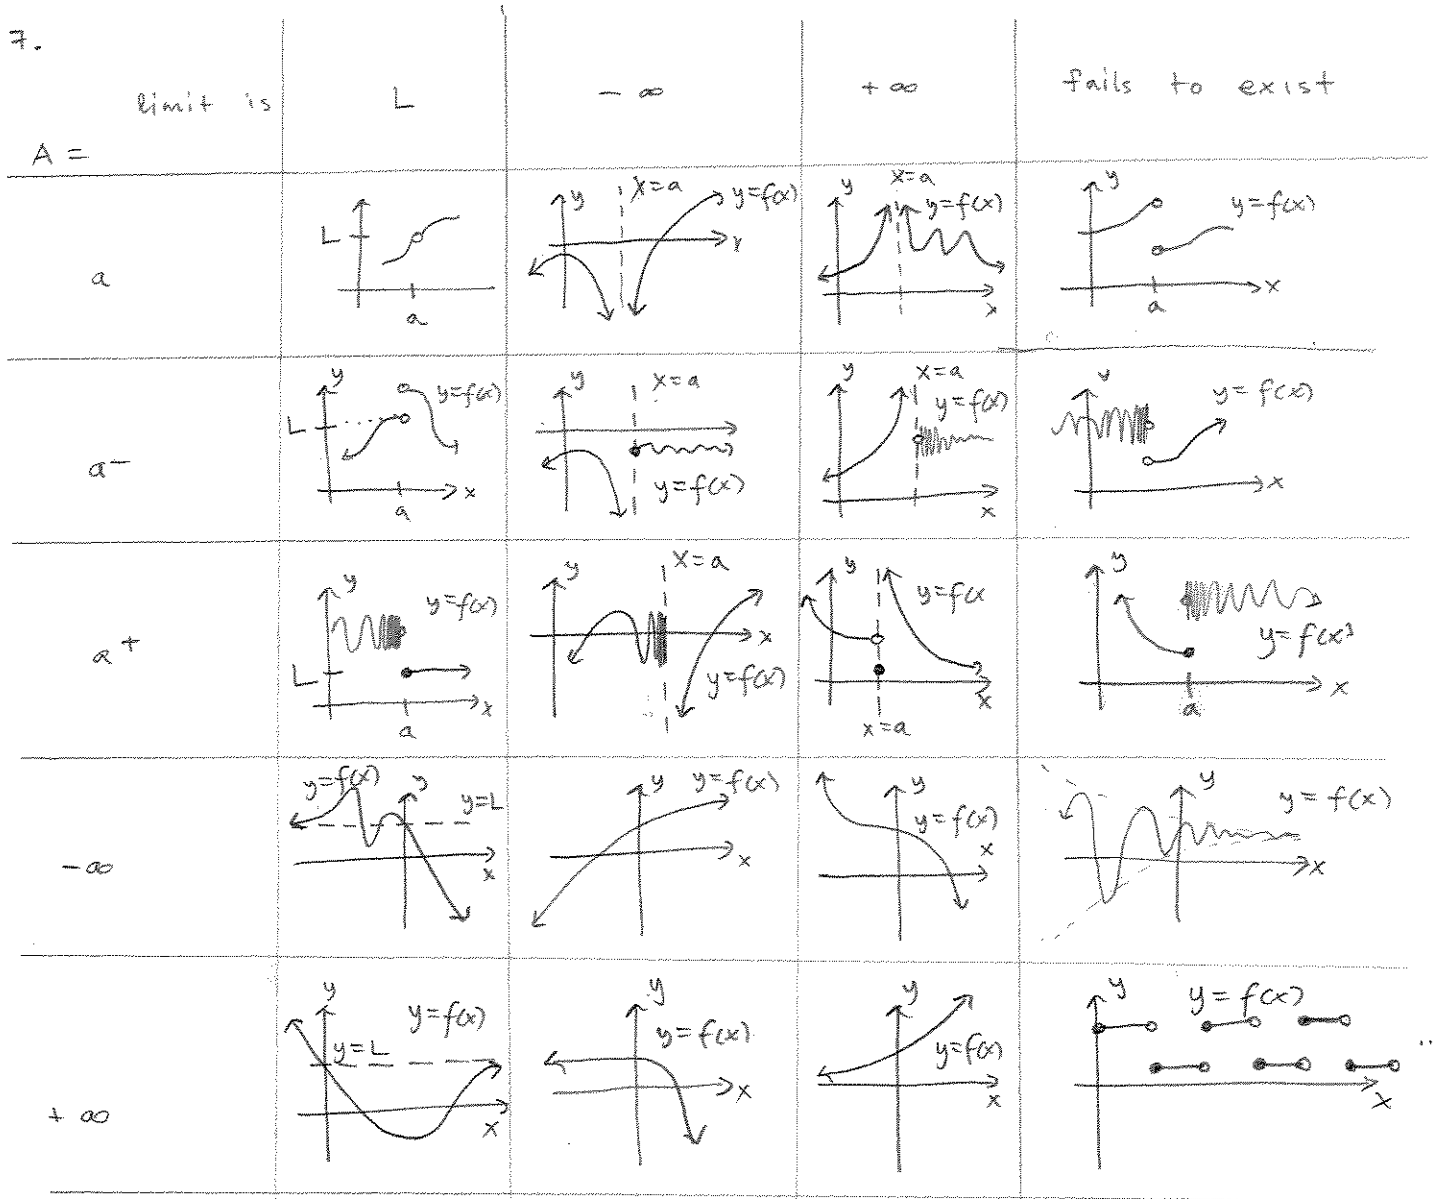 7.
limit is L - ∞ + ∞ fails to exist
A =
a
L
a
y
x=a
y=f(x)
x
y
x=a
y=f(x)
x
y
y=f(x)
a
x
a⁻
y
y=f(x)
L
x
a
y
x=a
y=f(x)
y
x=a
y=f(x)
x
y
y=f(x)
x
a⁺
y
y=f(x)
L
x
a
y
x=a
x
y=f(x)
y
y=f(x
x
x=a
y
y=f(x)
x
a
-∞
y=f(x)
y
y=L
x
y
y=f(x)
x
y
y=f(x)
x
y
y=f(x)
x
+∞
y
y=f(x)
y=L
x
y
y=f(x)
x
y
y=f(x)
x
y
y=f(x)
..
x